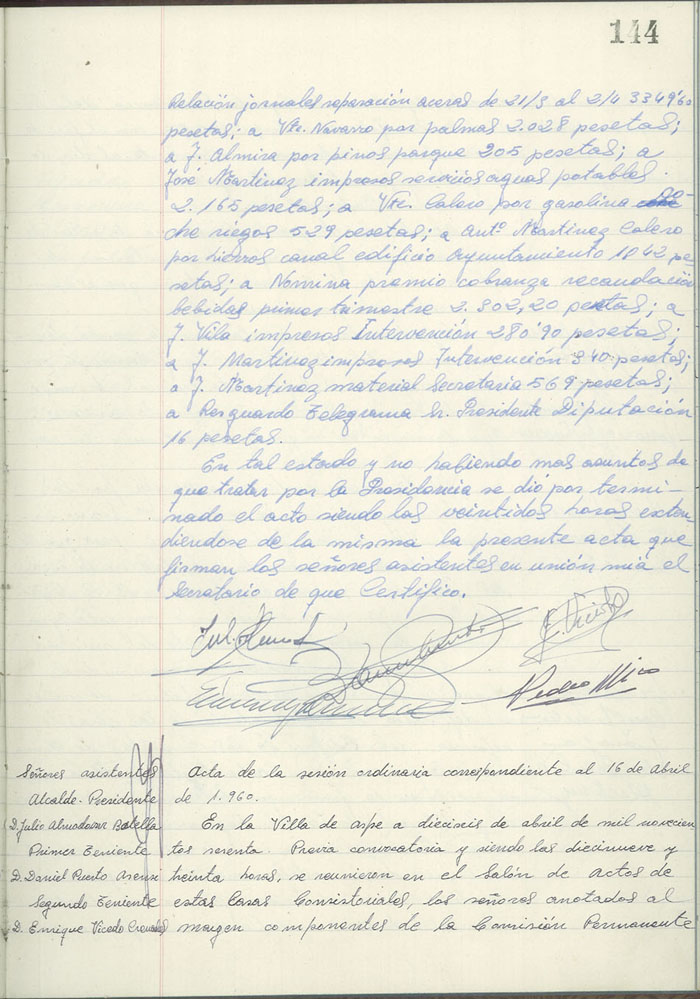 144
Relación jornales reparación aceras de 21/3 al 2/4 3349'60
pesetas; a Vte. Navarro por palmas 2.028 pesetas;
a J. Almira por pinos parque 205 pesetas; a
José Martinez impresos servicios aguas potables
2.165 pesetas; a Vte. Calero por gasolina co-
che riegos 529 pesetas; a Antº Martinez Calero
por hierros canal edificio Ayuntamiento 1042 pe
setas; a Nomina premio cobranza recaudación
bebidas primer trimestre 2.302,20 pesetas; a
J. Vila impresos Intervención 280'90 pesetas;
a J. Martinez impresos Intervención 340 pesetas;
a J. Martinez material Secretaria 569 pesetas;
a Resguardo Telegrama Sr. Presidente Diputación
16 pesetas.
En tal estado y no habiendo mas asuntos de
que tratar por la Presidencia se dió por termi-
nado el acto siendo las veintidos horas exten
diendose de la misma la presente acta que
firman los señores asistentes en unión mia el
Secretario de que Certifico.
E. Vicedo
Pedro Mico
Señores asistentes
Alcalde-Presidente
D. Julio Almodovar Botella
Primer Teniente
D. Daniel Puerto Asensi
Segundo Teniente
D. Enrique Vicedo
Acta de la sesión ordinaria correspondiente al 16 de Abril
de 1.960.
En la Villa de Aspe a dieciseis de abril de mil novecien
tos sesenta. Previa convocatoria y siendo las diecinueve y
treinta horas, se reunieron en el Salón de Actos de
estas Casas Consistoriales, los señores anotados al
margen componentes de la Comisión Permanente